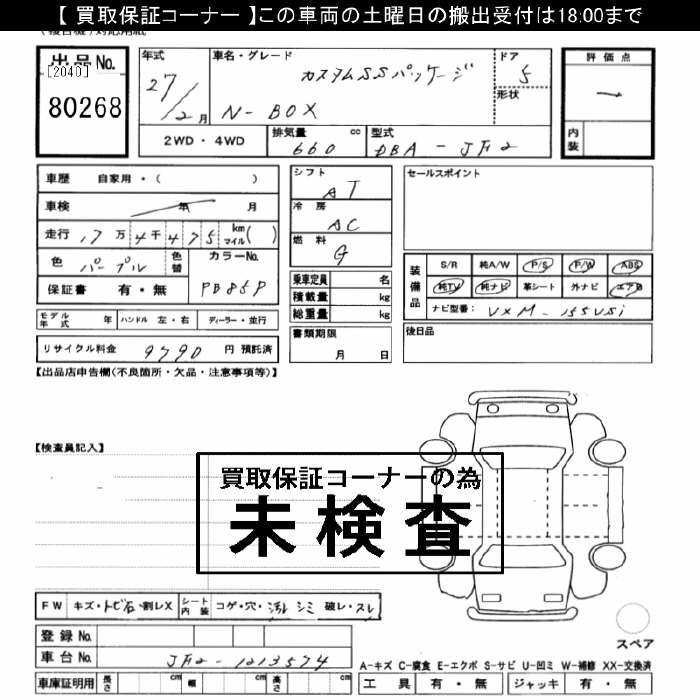 【 買取保証コーナー 】この車両の土曜日の搬出受付は18:00まで
出品No.
[2040]
80268
年式
27/2月
車名・グレード
カスタムSSパッケージ
N-BOX
ドア
5
形状
評価点
ー
内装
2WD・4WD
排気量 cc
660
型式
DBA-JF2
車歴 自家用・( )
車検 年 月
走行 17万4千475 km マイル( )
色 パープル
色替
カラーNo.
PB85P
保証書 有・無
シフト
AT
冷房
AC
燃料
G
乗車定員 名
積載量 kg
総重量 kg
書類期限
月 日
セールスポイント
装備品
S/R 純A/W P/S P/W ABS
純TV 純ナビ 革シート 外ナビ エアB
ナビ型番: VXM-155VSi
後日品
モデル年式 年 ハンドル 左・右 ディーラー・並行
リサイクル料金 9790 円 預託済
【出品店申告欄(不良箇所・欠品・注意事項等)】
【検査員記入】
買取保証コーナーの為
未検査
FW キズ・トビ石・割レX シート内装 コゲ・穴・汚レ シミ 破レ・スレ
登録No.
車台No. JF2-1213574
車庫証明用 長さ cm 幅 cm 高さ cm
スペア
A-キズ C-腐食 E-エクボ S-サビ U-凹ミ W-補修 XX-交換済
工具 有・無 ジャッキ 有・無